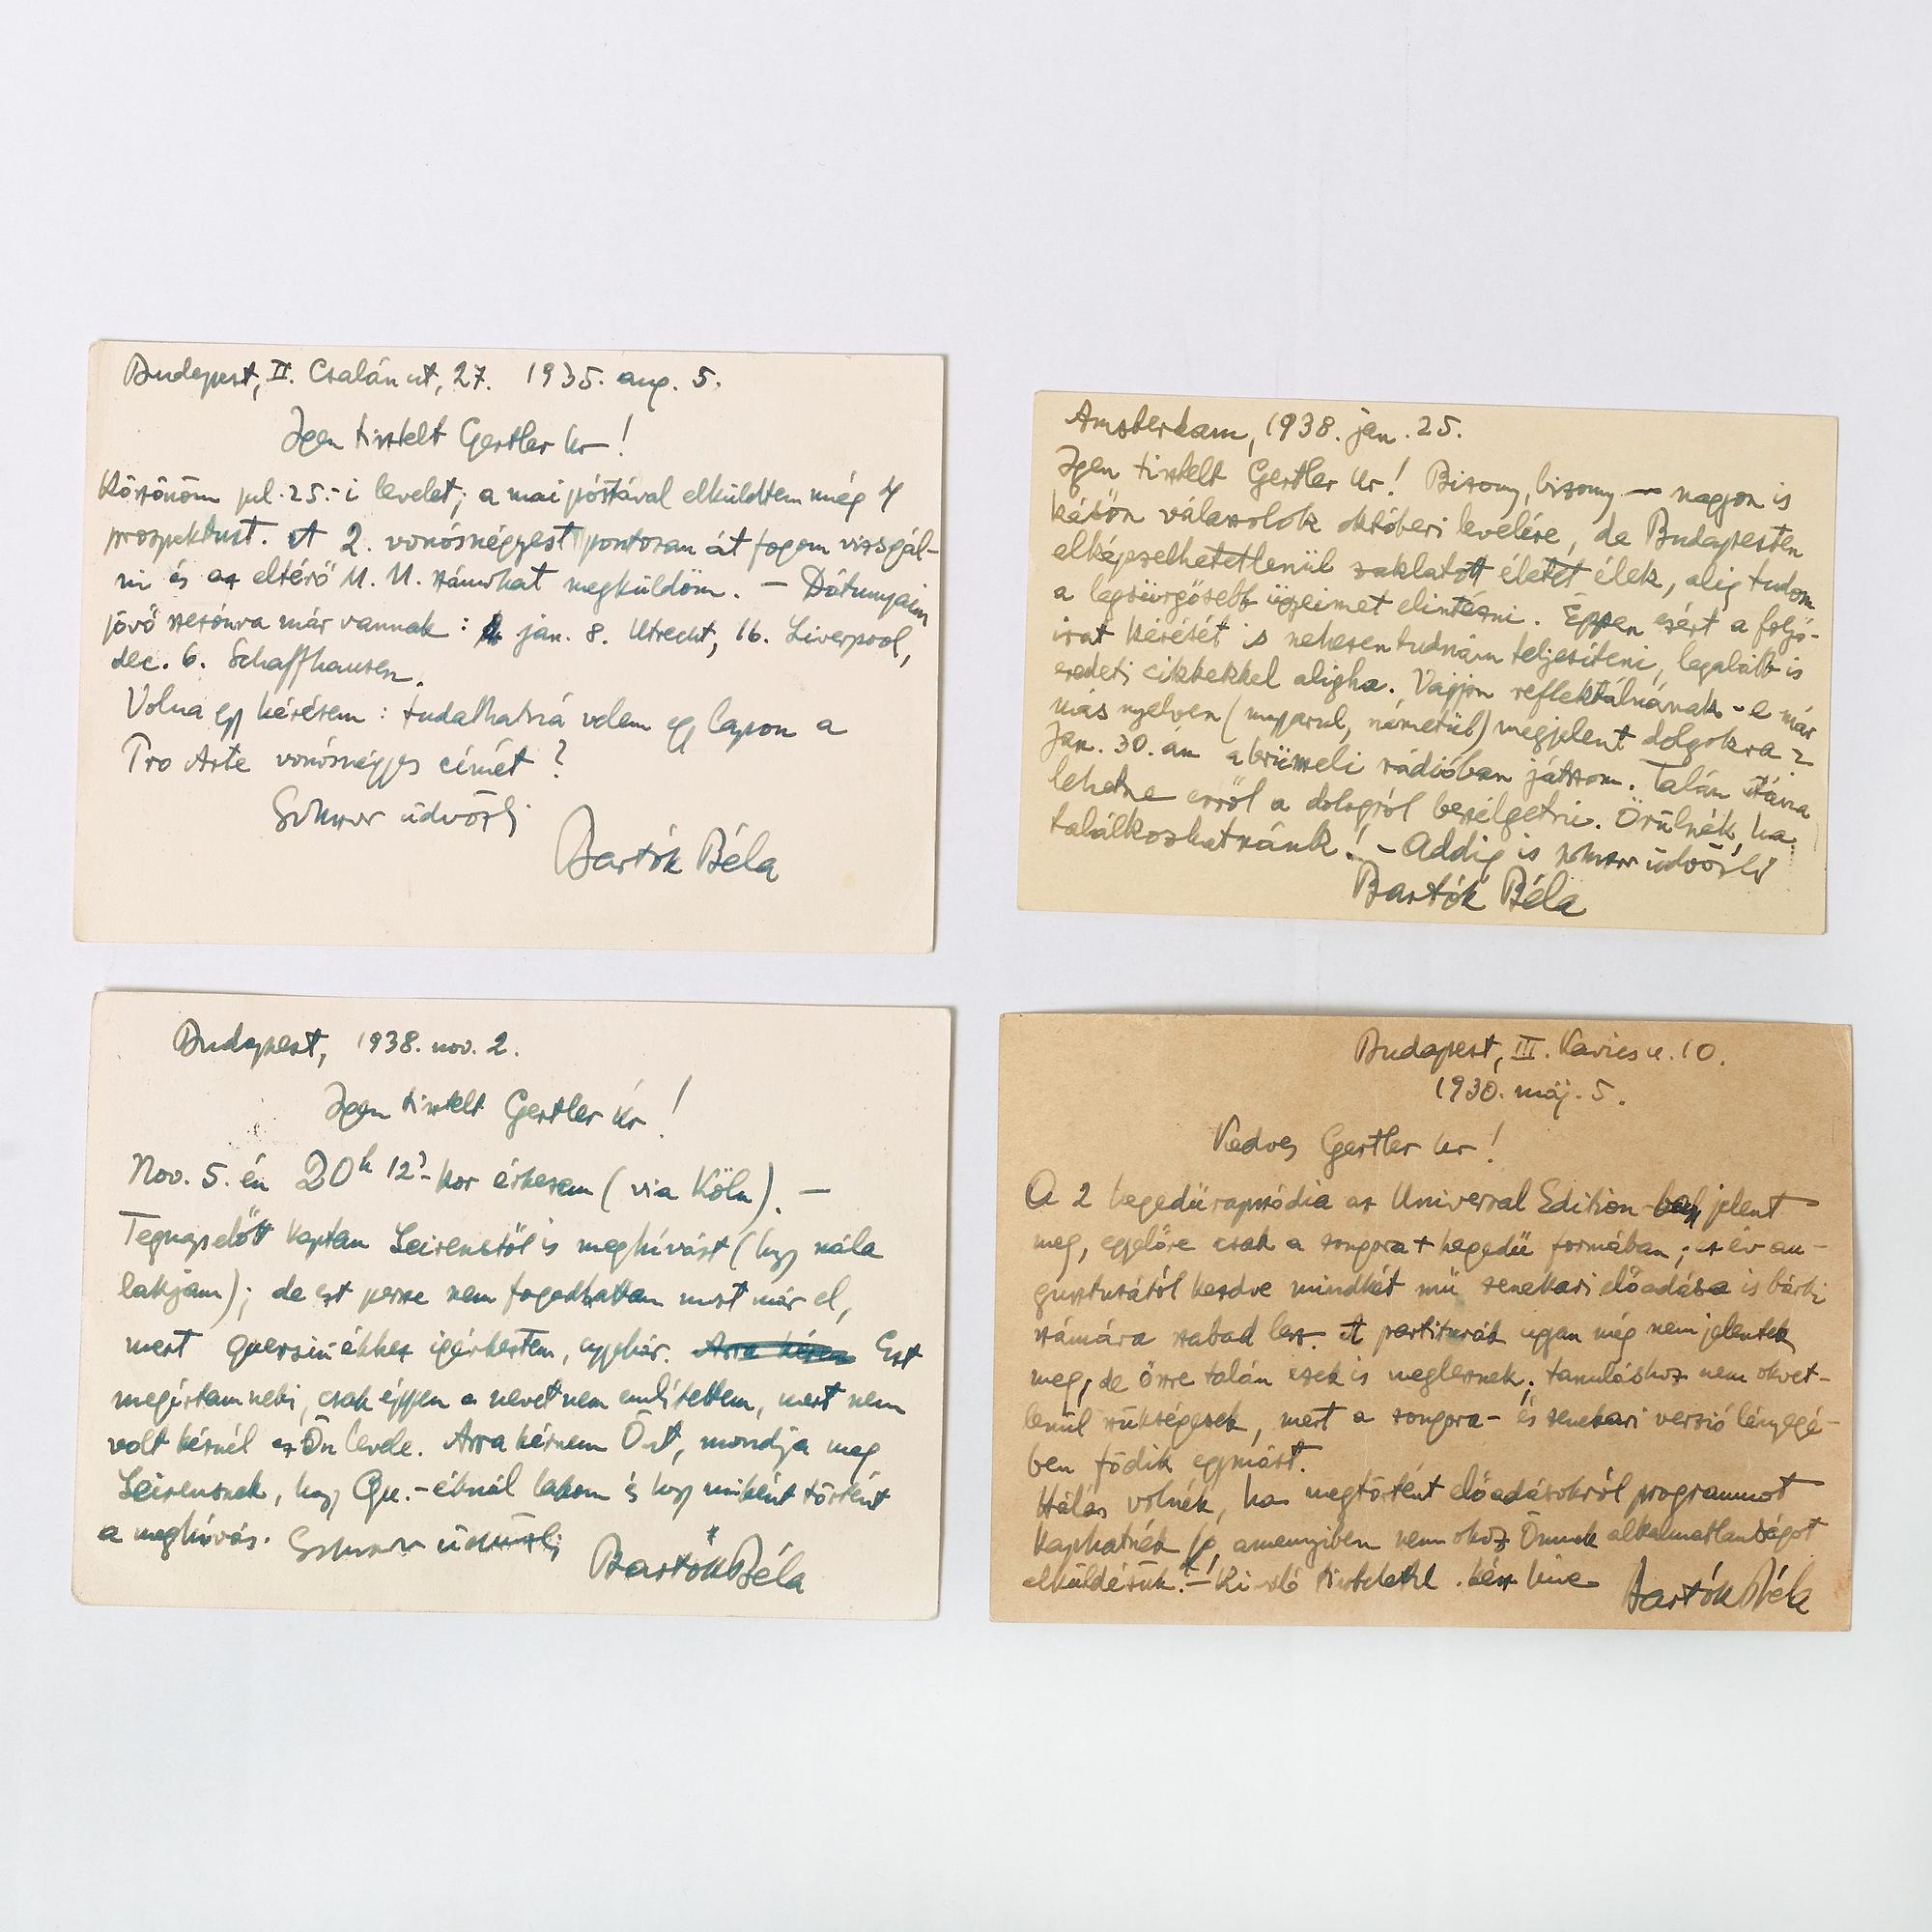 Budapest, II. Csalán ut, 27. 1935. aug. 5.
Igen tisztelt Gertler Ur!
Köszönöm jul. 25.-i levelét; a mai póstával elküldtem még 4
prospektust. A 2. vonósnégyest pontosan át fogom vizsgál-
ni és az eltérő M. M. számokat megküldöm. — Dátumjaim
jövő szezónra már vannak: jan. 8. Utrecht, 16. Liverpool,
dec. 6. Schaffhausen.
Volna egy kérésem: tudathatná velem egy lapon a
Pro Arte vonósnégyes címét?
Sokszor üdvözli
Bartók Béla
Amsterdam, 1938. jan. 25.
Igen tisztelt Gertler Ur! Bizony, bizony — nagyon is
későn válaszolok októberi levelére, de Budapesten
elképzelhetetlenül zaklatott életet élek, alig tudom
a legsürgősebb ügyeimet elintézni. Éppen ezért a folyó-
irat kérését is nehezen tudnám teljesíteni, legalább is
eredeti cikkekkel aligha. Vajjon reflektálnának-e már
más nyelven (magyarul, németül) megjelent dolgokra?
Jan. 30.-án a brüsszeli rádióban játszom. Talán utána
lehetne erről a dologról beszélgetni. Örülnék, ha
találkozhatnánk! – Addig is sokszor üdvözli
Bartók Béla
Budapest, 1938. nov. 2.
Igen tisztelt Gertler Úr!
Nov. 5.-én 20h 12?-kor érkezem (via Köln). —
Tegnapelőtt kaptam Leirenstől is meghívást (hogy nála
lakjam); de ezt persze nem fogadhattam most már el,
mert Guersin ékhez igérkeztem, egyhár. Arra kérem Ezt
megirtam neki, csak éppen a nevet nem emlitettem, mert nem
volt kéznél az Ön levele. Arra kérném Önt, mondja meg
Leirensnek, hogy Gu.-éknál lakom és hogy miként történt
a meghívás. Sokszor üdvözli
Bartók Béla
Budapest, III. Kavics u. 10.
1930. máj. 5.
Kedves Gertler Ur!
A 2 hegedürapszódia az Universal Edition-ban jelent
meg, egyelőre csak a zongora + hegedü formában; ez év au-
gusztusától kezdve mindkét mü zenekari előadása is bárki
számára szabad lesz. A partiturák ugyan még nem jelentek
meg, de őszre talán ezek is meglesznek; tanuláshoz nem okvet-
lenül szükségesek, mert a zongora- és zenekari verzió lényegé-
ben födik egymást.
Hálás volnék, ha megtörtént előadásokról programmot
kaphatnék, amennyiben nem okoz Önnek alkalmatlanságot
elküldésük. — Kiváló tisztelettel kész hive
Bartók Béla